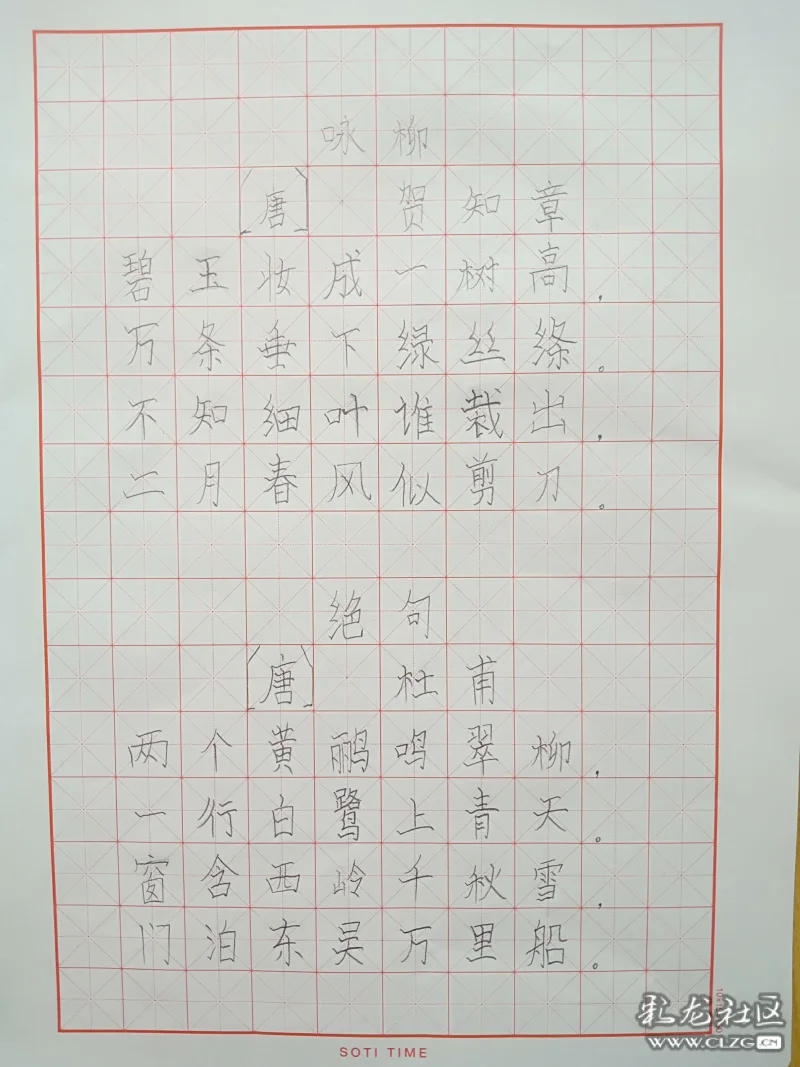 咏柳
[唐] 贺知章
碧玉妆成一树高，
万条垂下绿丝绦。
不知细叶谁裁出，
二月春风似剪刀。
绝句
[唐] 杜甫
两个黄鹂鸣翠柳，
一行白鹭上青天。
窗含西岭千秋雪，
门泊东吴万里船。
SOTI TIME
化龙社区
WWW.CLZG.CN